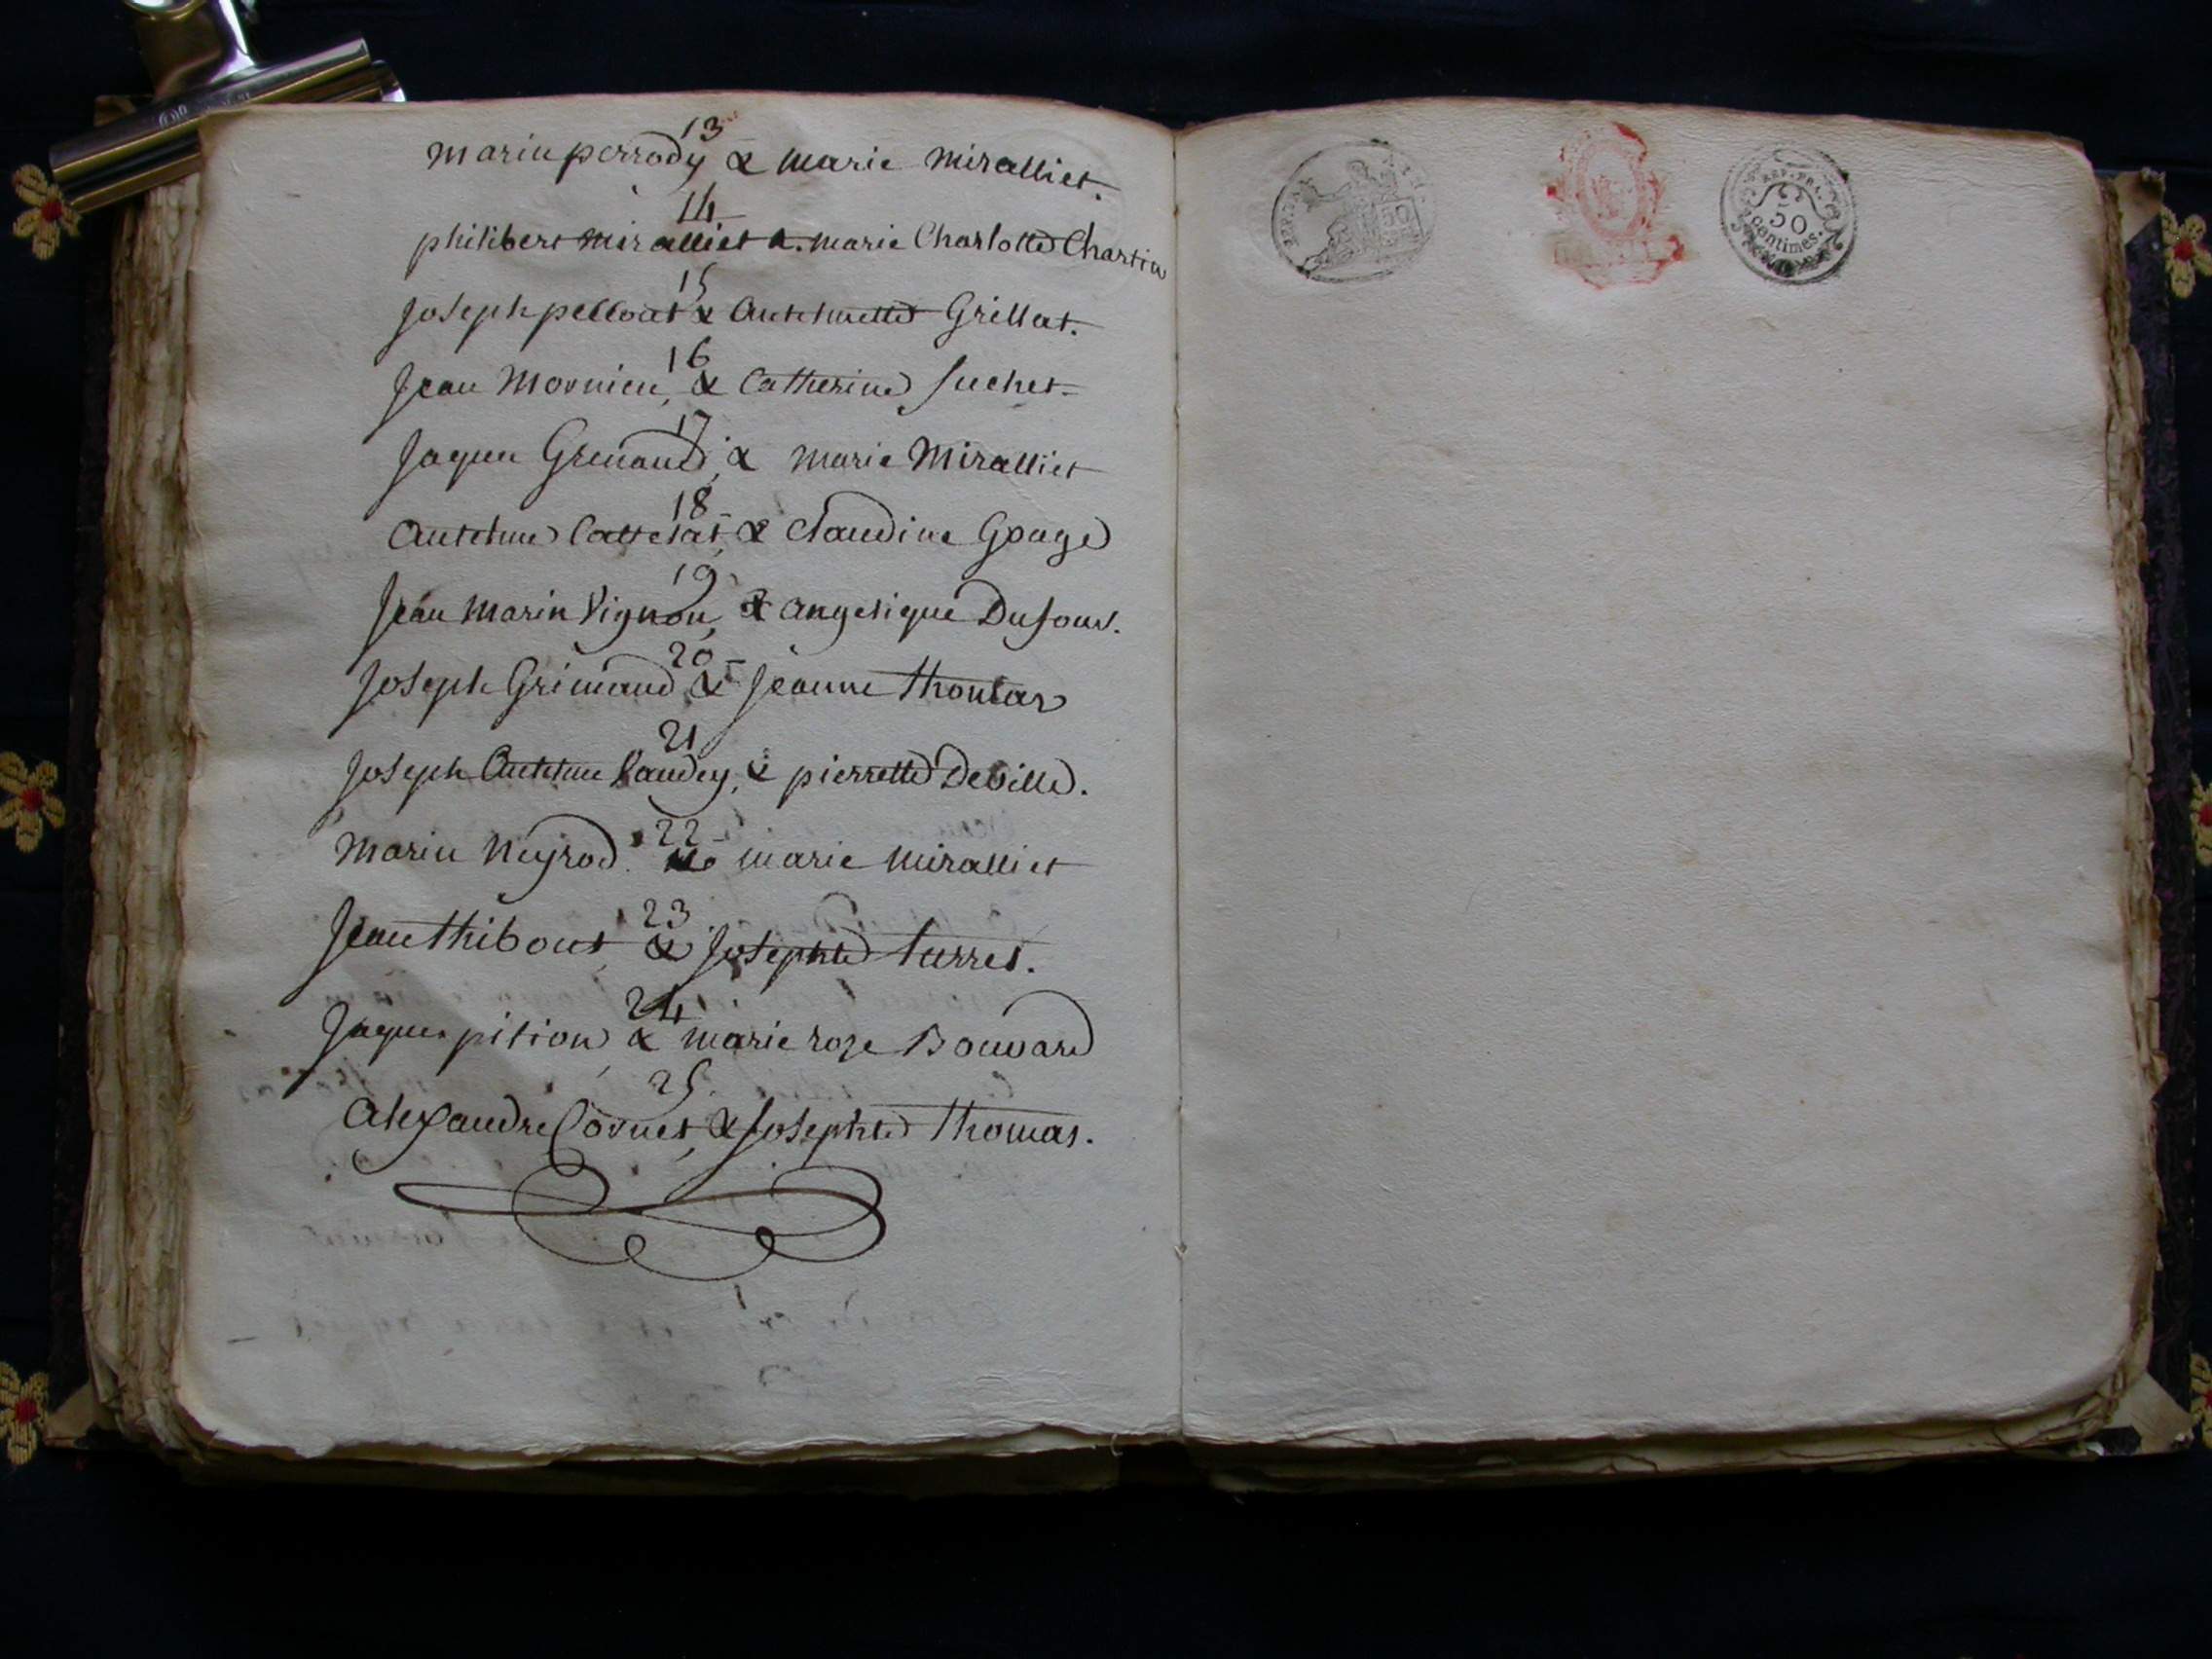 13
marin perrody & marie miralliet.
14
philibert miralliet & marie Charlotte Chartin
15
Joseph pellout & Anthelmette Grillat.
16
Jean Mornieu, & Catherine Suchet
17
Jaques Grimaud, & marie Miralliet
18
Anthelme Cattelat, & Claudine Gouge
19
Jean Marin Vignon, & angelique Dufour.
20
Joseph Grimaud & Jeanne thomas
21
Joseph Anthelme Landey, & pierrette Deville.
22
Marin Neyrod. & marie miralliet
23
Jean thibout & Josephte turrel.
24
Jaques pition, & marie roze Bouvard
25
Alexandre Cornet, & Josephte thomas.
REP. FRA.
50
Centimes.